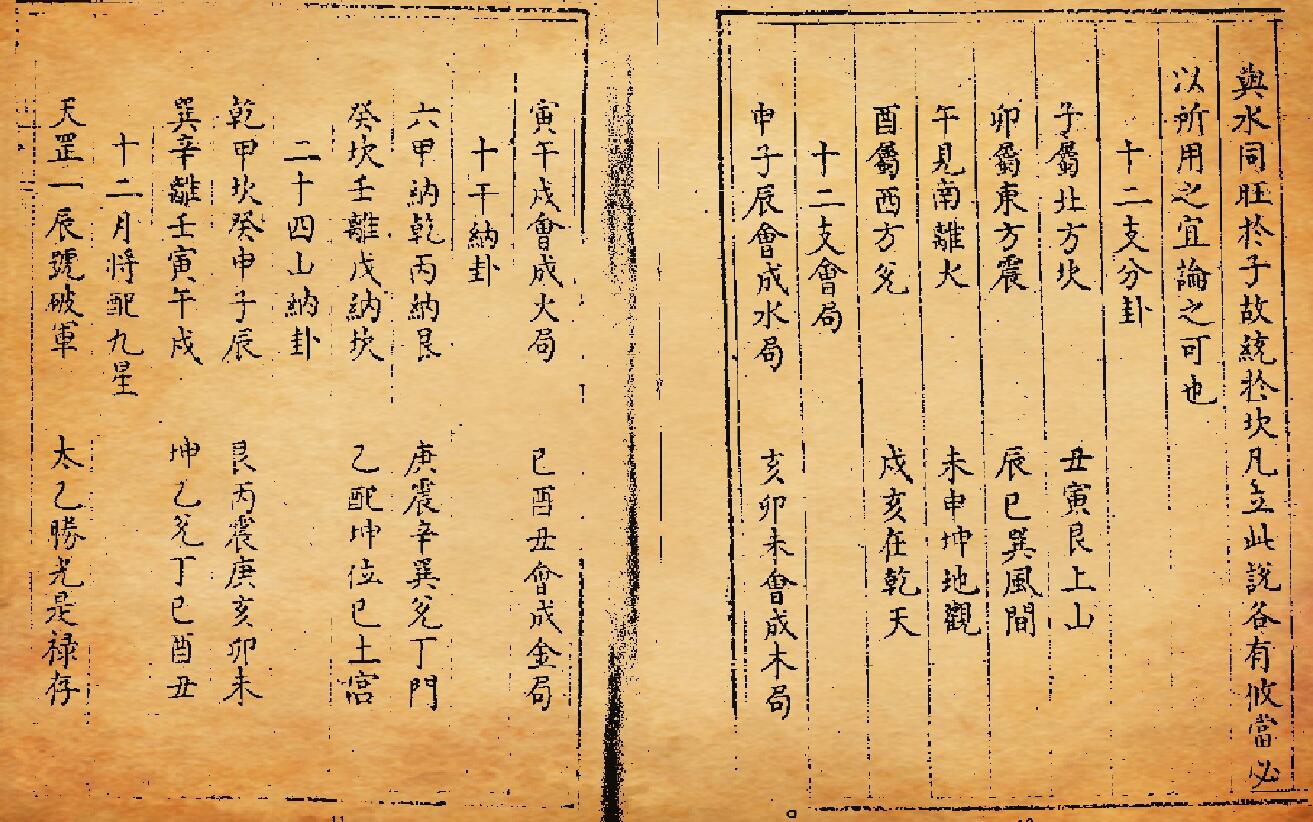 與水同旺於子故統於坎凡立此說各有攸當必
以所用之宜論之可也
十二支分卦
子屬北方坎　丑寅艮上山
卯屬東方震　辰巳巽風間
午見南離火　未申坤地觀
酉屬西方兌　戌亥在乾天
十二支會局
申子辰會成水局　亥卯未會成木局
寅午戌會成火局　巳酉丑會成金局
十干納卦
六甲納乾丙納艮　庚震辛巽兌丁門
癸坎壬離戊納坎　乙配坤位己土宮
二十四山納卦
乾甲坎癸申子辰　艮丙震庚亥卯未
巽辛離壬寅午戌　坤乙兌丁巳酉丑
十二月將配九星
天罡一辰號破軍　太乙勝光是禄存